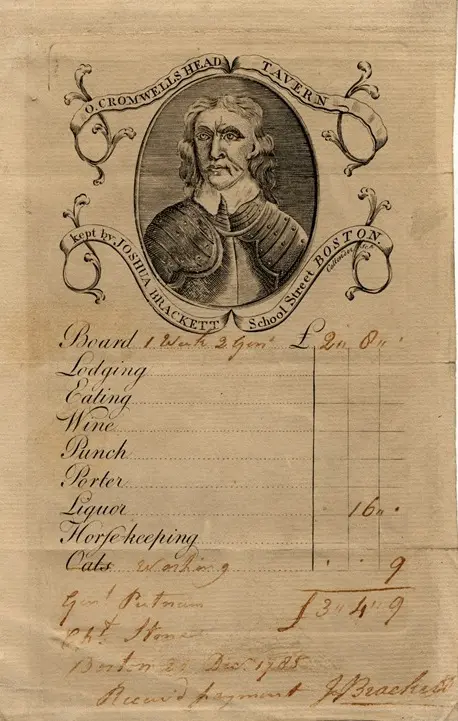 O. CROMWELLS HEAD TAVERN
kept by JOSHUA BRACKETT School Street BOSTON.
Board 1 Week 2 Gen.ⁿ £ 2 " 8 " .
Lodging
Eating
Wine
Punch
Porter
Liquor 16 " .
Horse-keeping
Oats Washing . . 9
Gen.ˡ Putnam £3 " 4 " 9
Boston 22 Dec.ʳ 1788
Receiv'd payment J Brackett